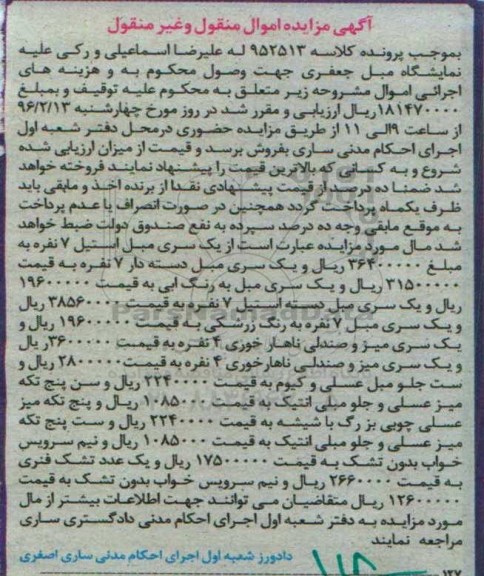 آگهی مزایده اموال منقول وغیر منقول
بموجب پرونده کلاسه ۹۵۲۵۱۳ له علیرضا اسماعیلی و رکی علیه
نمایشگاه مبل جعفری جهت وصول محکوم به و هزینه های
اجرائی اموال مشروحه زیر متعلق به محکوم علیه توقیف و بمبلغ
۱۸۱۴۷۰۰۰۰ریال ارزیابی و مقرر شد در روز مورخ چهارشنبه ۹۶/۲/۱۳
از ساعت ۹الی ۱۱ از طریق مزایده حضوری درمحل دفتر شعبه اول
اجرای احکام مدنی ساری بفروش برسد و قیمت از میزان ارزیابی شده
شروع و به کسانی که بالاترین قیمت را پیشنهاد نمایند فروخته خواهد
شد ضمنا ده درصد از قیمت پیشنهادی نقدا از برنده اخذ و مابقی باید
ظرف یکماه پرداخت گردد همچنین در صورت انصراف یا عدم پرداخت
به موقع مابقی وجه ده درصد سپرده به نفع صندوق دولت ضبط خواهد
شد مال مورد مزایده عبارت است از یک سری مبل استیل ۷ نفره به
مبلغ ۳۶۴۰۰۰۰۰ ریال و یک سری مبل دسته دار ۷ نفره به قیمت
۳۱۵۰۰۰۰۰ ریال و یک سری مبل به رنگ ابی به قیمت ۱۹۶۰۰۰۰۰
ریال و یک سری مبل دسته استیل ۷ نفره به قیمت ۳۸۵۶۰۰۰۰ ریال
و یک سری مبل ۷ نفره به رنگ زرشکی به قیمت ۱۹۶۰۰۰۰ ریال و
یک سری میز و صندلی ناهار خوری ۴ نفره به قیمت ۳۶۰۰۰۰۰ریال
و یک سری میز و صندلی ناهارخوری ۴ نفره به قیمت ۲۸۰۰۰۰۰ ریال و
ست جلو مبل عسلی و کیوم به قیمت ۲۲۴۰۰۰۰ ریال و سن پنج تکه
میز عسلی و جلو مبلی انتیک به قیمت ۱۰۸۵۰۰۰ ریال و پنج تکه میز
عسلی چوبی بز رگ با شیشه به قیمت ۲۲۴۰۰۰۰ ریال و ست پنج تکه
میز عسلی و جلو مبلی انتیک به قیمت ۱۰۸۵۰۰۰ ریال و نیم سرویس
خواب بدون تشک به قیمت ۱۷۵۰۰۰۰۰ ریال و یک عدد تشک فنری
به قیمت ۲۶۶۰۰۰۰ ریال و نیم سرویس خواب بدون تشک به قیمت
۱۲۶۰۰۰۰۰ ریال متقاضیان می توانند جهت اطلاعات بیشتر از مال
مورد مزایده به دفتر شعبه اول اجرای احکام مدنی دادگستری ساری
مراجعه نمایند
دادورز شعبه اول اجرای احکام مدنی ساری اصغری
ParsNamadData